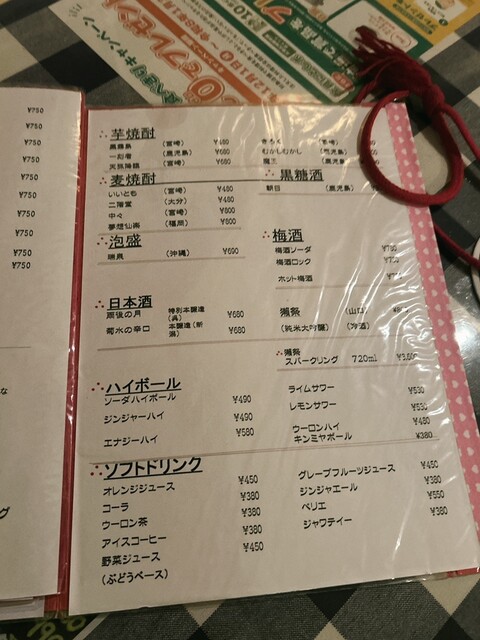 ¥750
¥750
¥750
¥750
¥750
¥750
¥750
¥750
¥750
芋焼酎
黒霧島 (宮崎) ¥480
一刻者 (鹿児島) ¥680
天照降臨 (宮崎) ¥680
むかしむかし (鹿児島)
魔王 (鹿児島)
麦焼酎
いいとも (宮崎) ¥480
二階堂 (大分) ¥480
中々 (宮崎) ¥800
夢想仙楽 (福岡) ¥800
黒糖酒
朝日 (鹿児島)
泡盛
瑞泉 (沖縄) ¥690
梅酒
梅酒ソーダ
梅酒ロック
ホット梅酒
日本酒
雨後の月 特別本醸造(呉) ¥680
菊水の辛口 本醸造(新潟) ¥680
獺祭 (山口)
(純米大吟醸) (冷酒)
獺祭
スパークリング 720ml
ハイボール
ソーダハイボール ¥490
ジンジャーハイ ¥490
エナジーハイ ¥580
ライムサワー ¥530
レモンサワー ¥530
ウーロンハイ ¥480
キンミヤボール ¥380
ソフトドリンク
オレンジジュース ¥450
コーラ ¥380
ウーロン茶 ¥380
アイスコーヒー ¥380
野菜ジュース ¥450
(ぶどうベース)
グレープフルーツジュース ¥450
ジンジャエール ¥380
ペリエ ¥550
ジャワティー ¥380